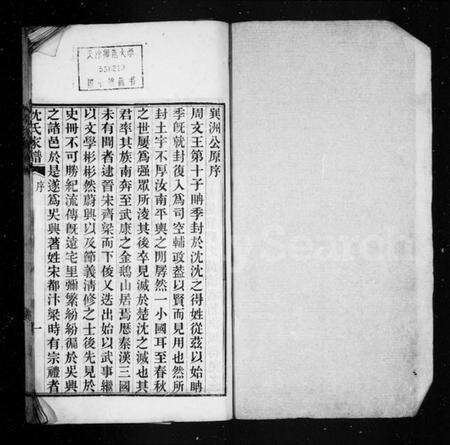 巽洲公原序
周文王第十子聃季封於沈沈之得姓從茲以始聃
季旣就封復入爲司空輔政蓋以賢而見用也然所
封土宇不厚汝南平輿之閒孱然一小國耳至春秋
之世屢爲强眾所淩其後卒見滅於楚沈之滅也其
君率其族南奔至武康之金鵝山居焉歷秦漢三國
未有聞者逮晉宋齊梁而下俊又迭出始以武事繼
以文學彬彬然蔚興以及節義淸修之士後先見於
史冊不可勝紀流傳旣遠宅里彌繁紛紛徧於吳興
之諸邑於是遂爲吳興著姓宋都汴梁時有宗禮者
沈氏家譜
序
一
天津師範大學
圖書館藏書